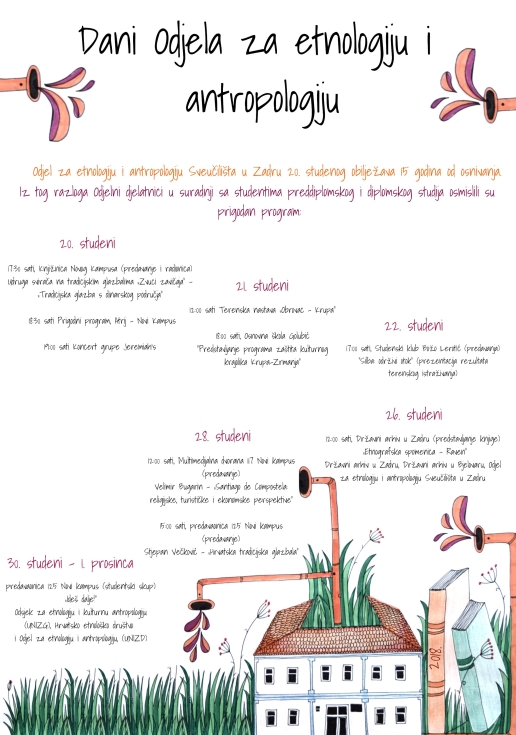 Dani Odjela za etnologiju i
antropologiju
Odjel za etnologiju i antropologiju Sveučilišta u Zadru 20. studenog obilježava 15 godina od osnivanja.
Iz tog razloga Odjelni djelatnici u suradnji sa studentima preddiplomskog i diplomskog studija osmislili su
prigodan program:
20. studeni
17:30 sati, Knjižnica Novog Kampusa (predavanje i radionica)
Udruga svirača na tradicijskim glazbalima „Zvuci zavičaja" -
„Tradicijska glazba s dinarskog područja"
18:30 sati Prigodni program, Atrij - Novi Kampus
19:00 sati Koncert grupe Jeremiah's
21. studeni
12:00 sati Terenska nastava „Obrovac - Krupa"
18:00 sati, Osnovna škola Golubić
"Predstavljanje programa zaštita kulturnog
krajolika Krupa-Zrmanja"
22. studeni
17:00 sati, Studenski klub Božo Lerotić (predavanje)
"Silba održivi otok" (prezentacija rezultata
terenskog istraživanja)
26. studeni
12:00 sati, Državni arhiv u Zadru (predstavljanje knjige)
„Etnografska spomenica - Raven"
Državni arhiv u Zadru, Državni arhiv u Bjelovaru, Odjel
za etnologiju i antropologiju Sveučilišta u Zadru
28. studeni
12:00 sati, Multimedijalna dvorana 1.17 Novi kampus
(predavanje)
Velimir Bugarin - „Santiago de Compostela:
religijske, turističke i ekonomske perspektive"
15:00 sati, predavaonica 12.5 Novi kampus
(predavanje)
Stjepan Večković - „Hrvatska tradicijska glazbala"
30. studeni - 1. prosinca
predavaonica 12.5 Novi kampus (studentski skup)
„Ideš dalje?"
Odsjek za etnologiju i kulturnu antropologiju
(UNIZG), Hrvatsko etnološko društvo
i Odjel za etnologiju i antropologiju, (UNIZD)
2018.